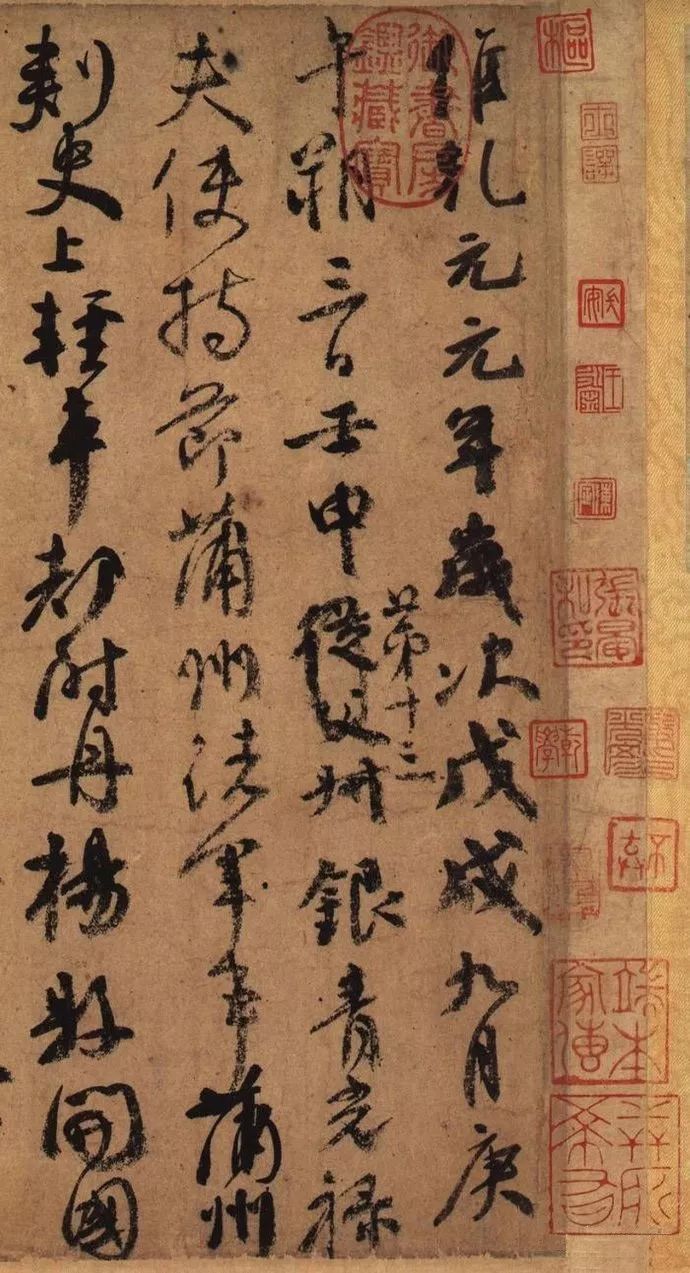 維乾元元年歲次戊戌九月庚
午朔三日壬申第十三從父叔銀青光祿
夫使持節蒲州諸軍事蒲州
刺史上輕車都尉丹楊縣開國
御書房鑑藏寶
樞
張晏私印
乾學
端本家傳